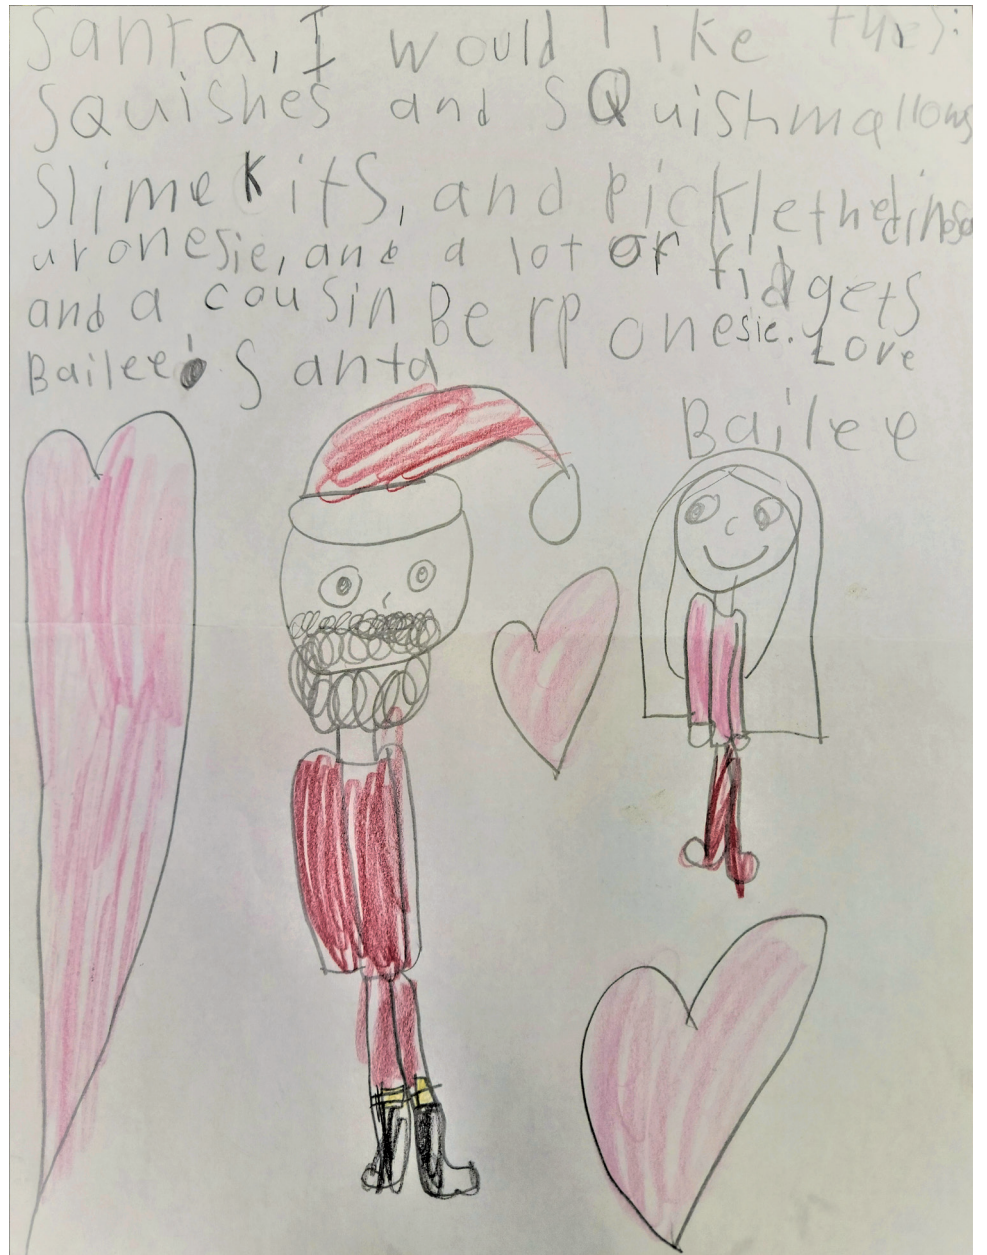 Santa, I would like thes:
Squishes and SQuishmallows
Slime kits, and Picklethedinosa
uronesie, and a lot of fidgets
and a cousin Be rp onesie. Love
Bailee! Santa
Bailee